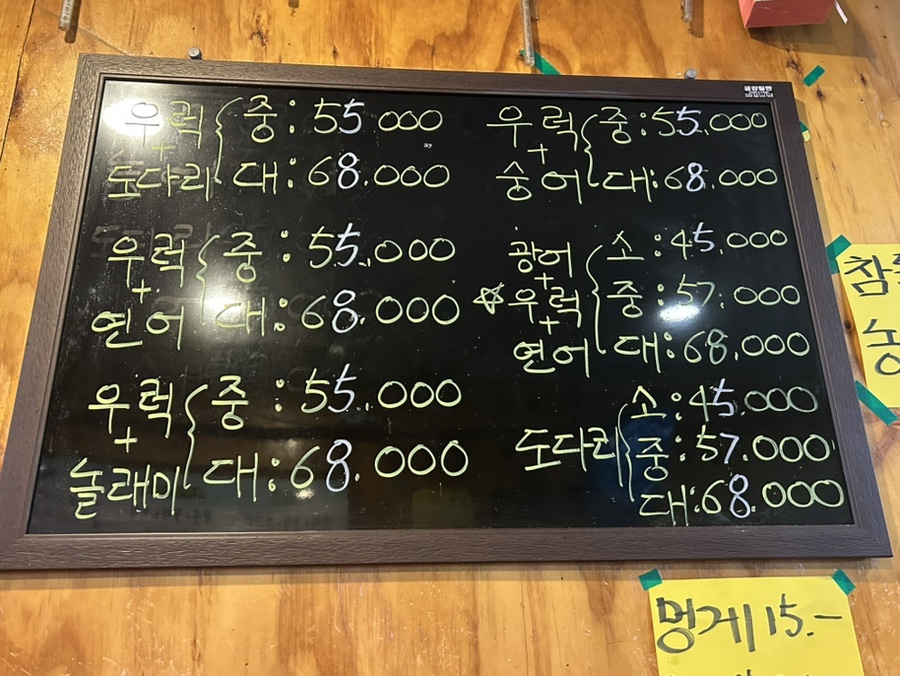 우럭 중: 55.000
+
도다리 대: 68.000
우럭 중: 55.000
+
연어 대: 68.000
우럭 중: 55.000
+
놀래미 대: 68.000
우럭 중: 55.000
+
숭어 대: 68.000
광어 소: 45.000
+
☆우럭 중: 57.000
+
연어 대: 68.000
소: 45.000
도다리 중: 57.000
대: 68.000
멍게 15.-